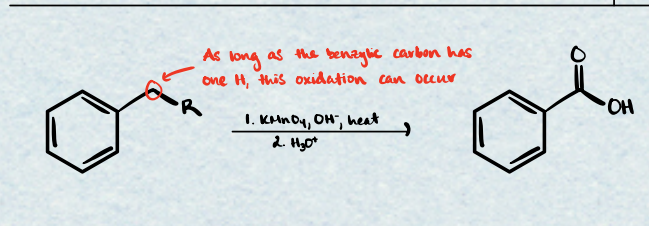 As long as the benzylic carbon has
one H, this oxidation can occur
R
1. KMnO₄, OH⁻, heat
2. H₃O⁺
O
OH